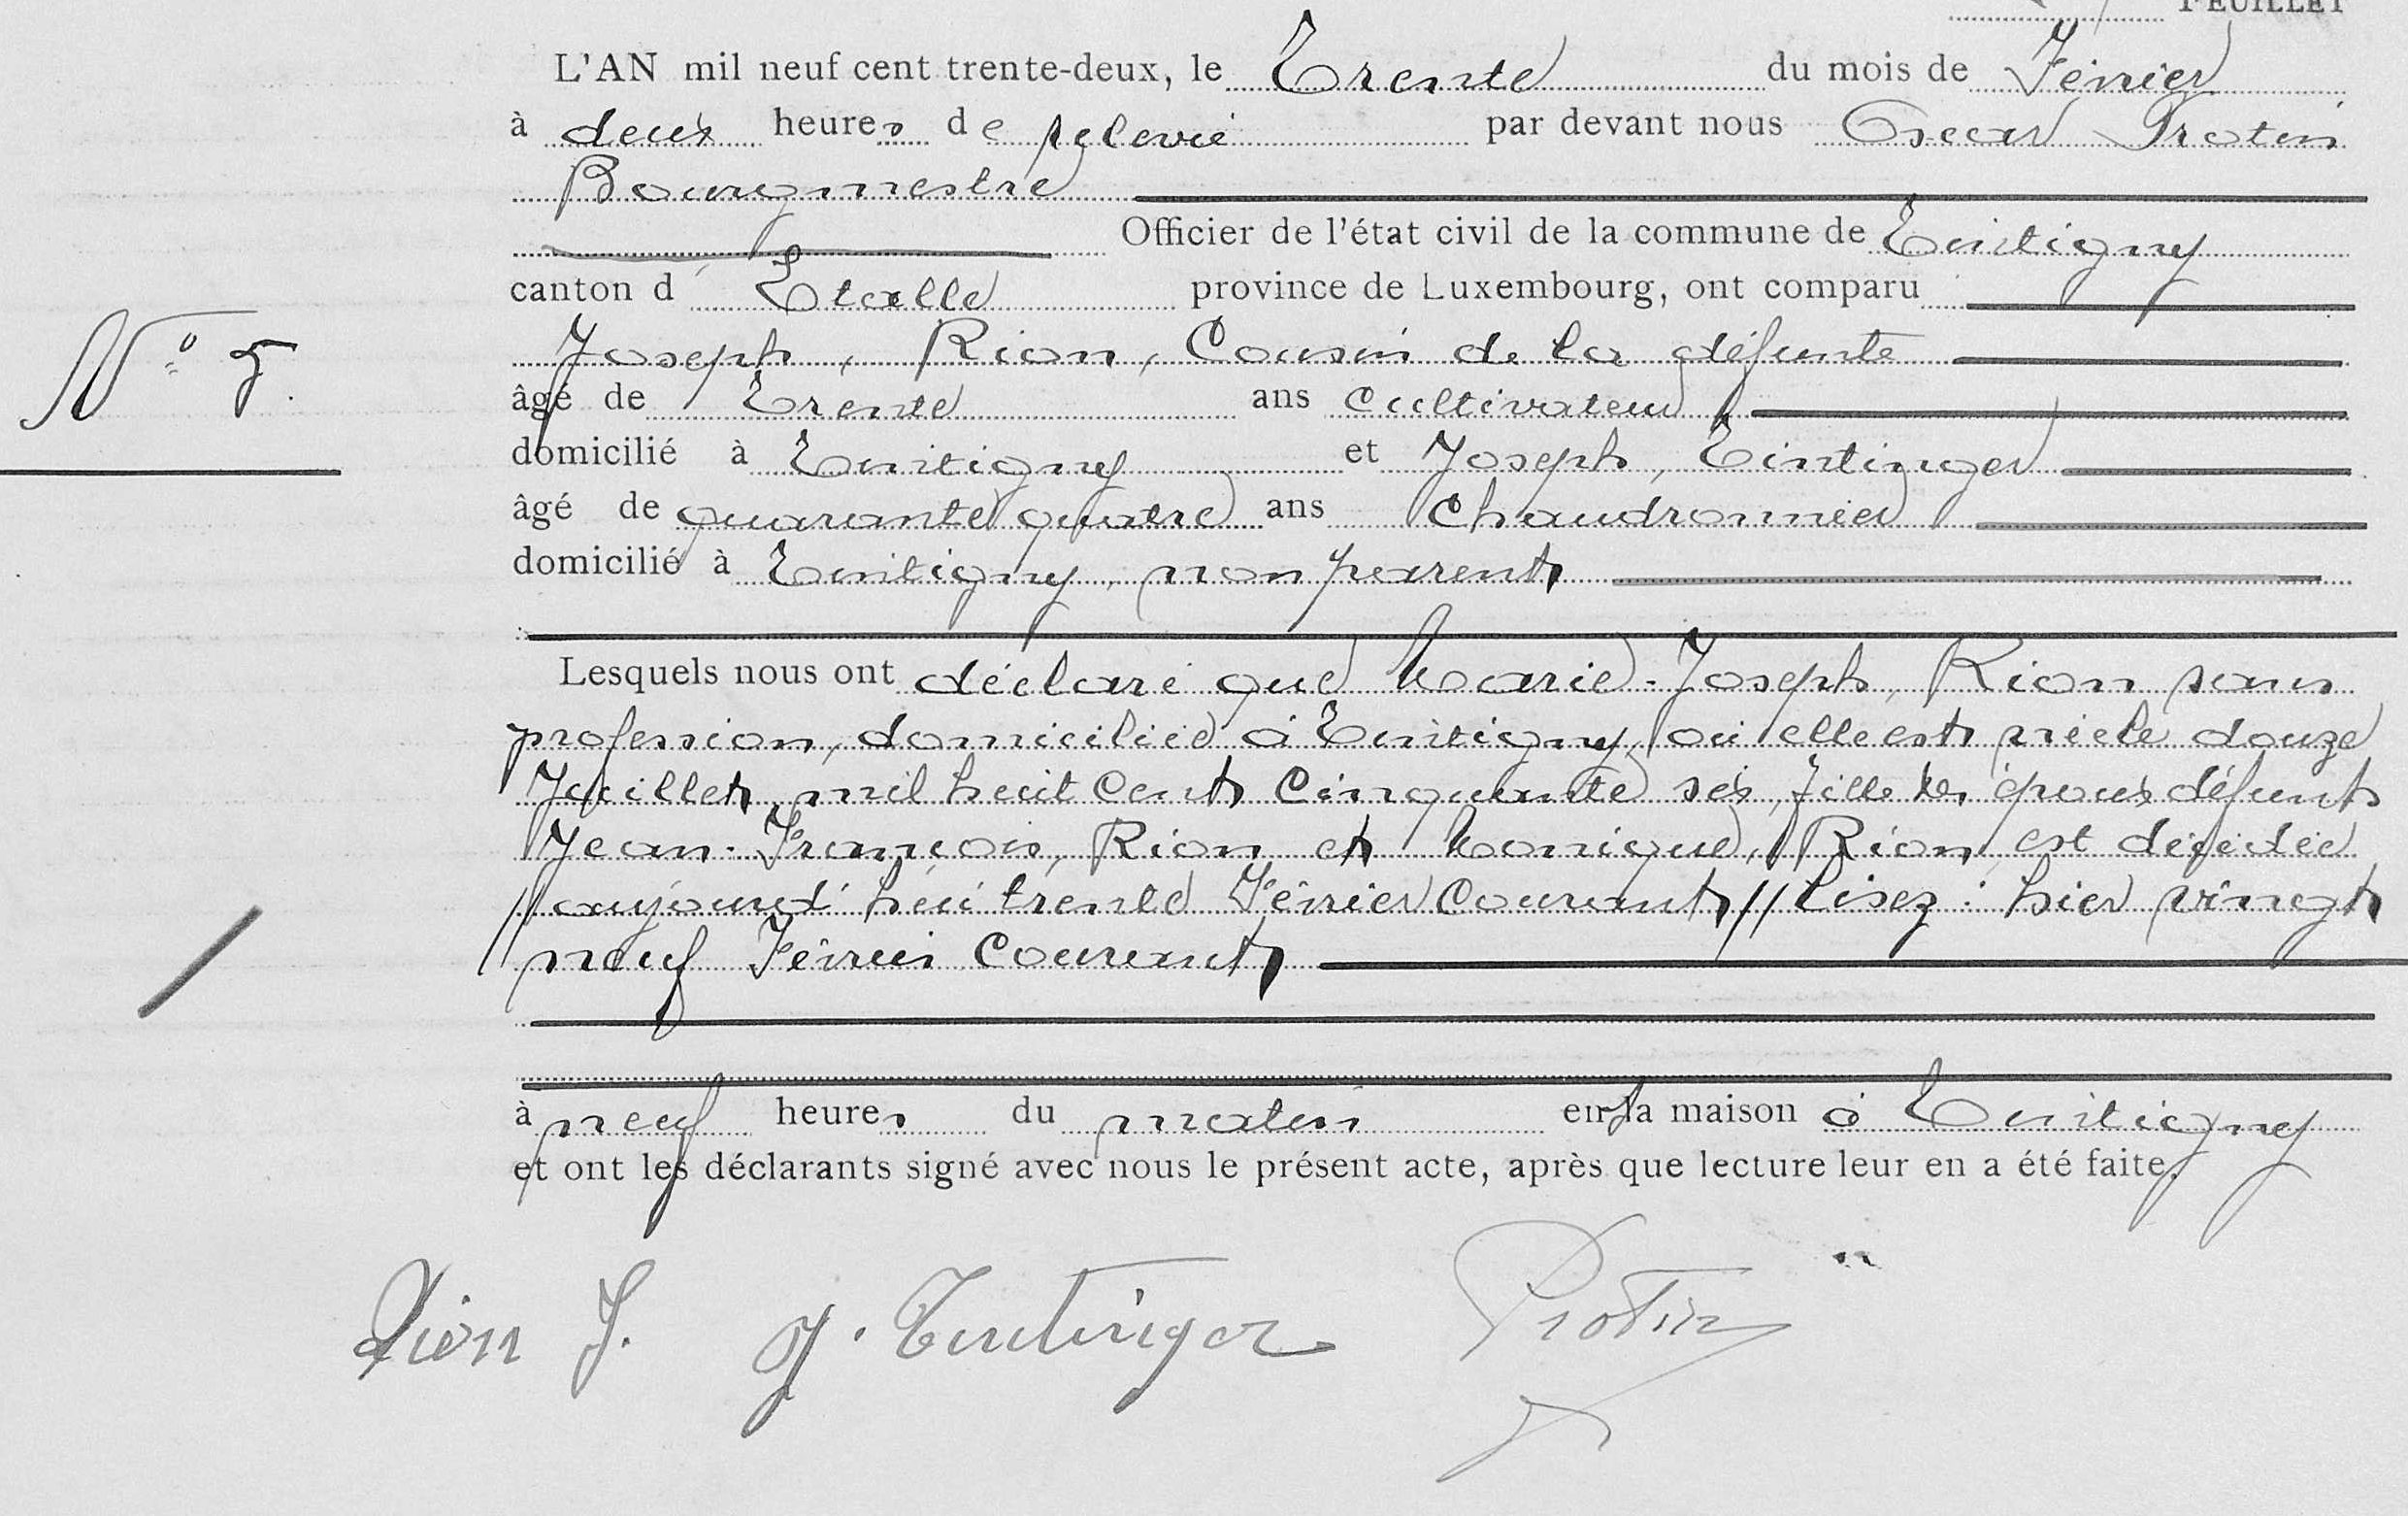 FEUILLET
L'AN mil neuf cent trente-deux, le Trente du mois de Février
à deux heures de relevée par devant nous Oscar Protin
Bourgmestre
Officier de l'état civil de la commune de Tintigny
canton d' Etalle province de Luxembourg, ont comparu
Joseph, Rion, Cousin de la défunte
N° 5.
âgé de Trente ans Cultivateur
domicilié à Tintigny et Joseph, Tintinger
âgé de quarante quatre ans Chaudronnier
domicilié à Tintigny, non parent
Lesquels nous ont déclaré que Marie-Joseph, Rion sans
profession, domiciliée à Tintigny, où elle est née le douze
Juillet, mil huit Cent Cinquante six, fille des époux défunts
Jean-François, Rion et Monique, Rion, est décédée
// aujourd'hui trente Février Courant // Lisez : hier vingt
neuf Février Courant
à neuf heures du matin en sa maison à Tintigny
et ont les déclarants signé avec nous le présent acte, après que lecture leur en a été faite.
Rion J. J. Tintinger Protin